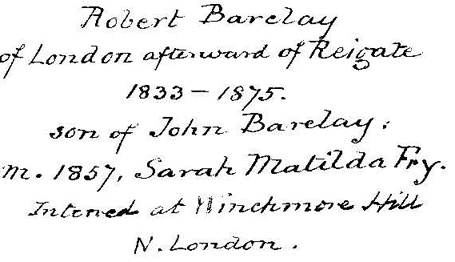 Robert Barclay
of London afterward of Reigate
1833 – 1875.
son of John Barclay.
m. 1857, Sarah Matilda Fry.
Intered at Winchmore Hill
N. London.